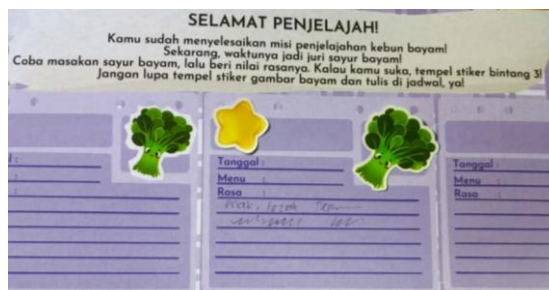 SELAMAT PENJELAJAH!
Kamu sudah menyelesaikan misi penjelajahan kebun bayam!
Sekarang, waktunya jadi juri sayur bayam!
Coba masakan sayur bayam, lalu beri nilai rasanya. Kalau kamu suka, tempel stiker bintang 3!
Jangan lupa tempel stiker gambar bayam dan tulis di jadwal, ya!
Tanggal :
Menu :
Rasa :
Tanggal :
Menu :
Rasa :